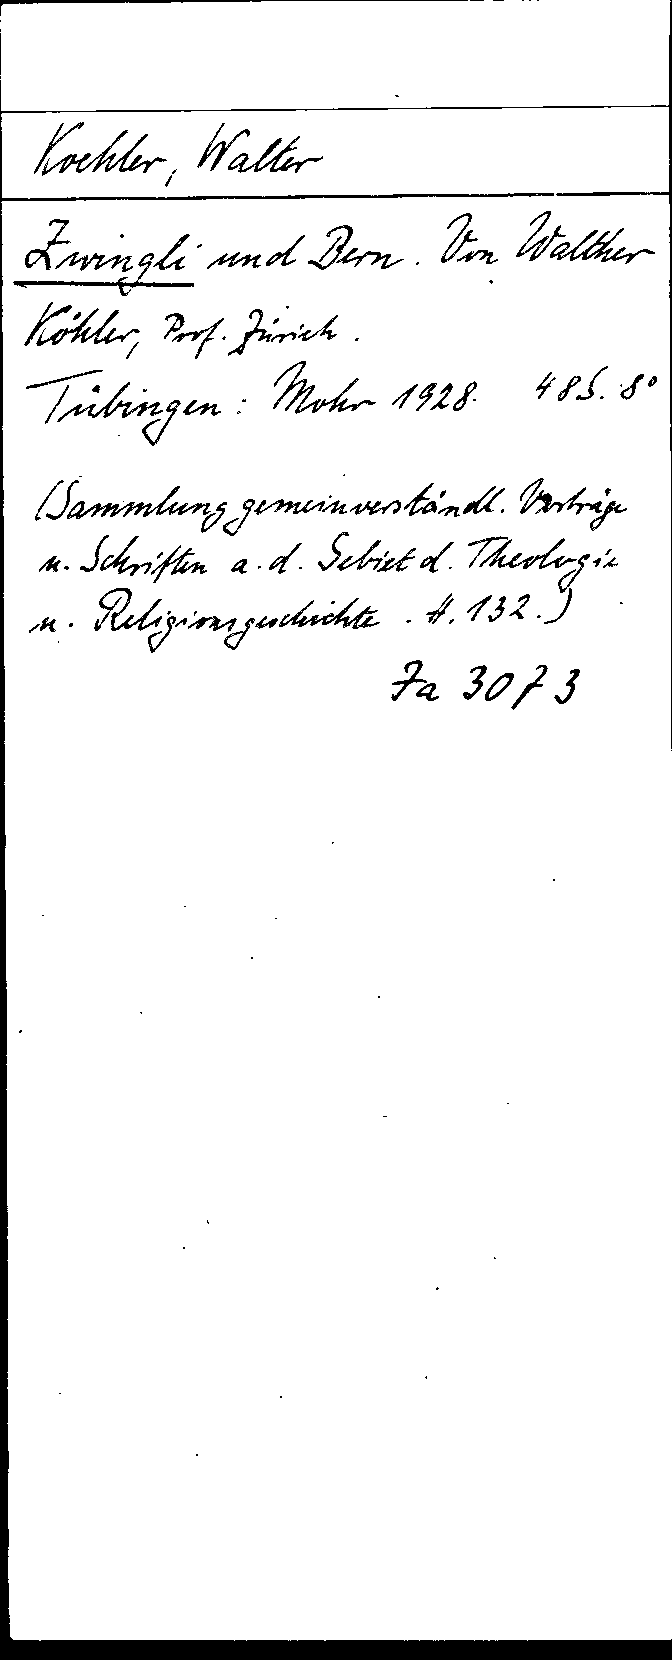 Koehler, Walter
Zwingli und Bern. Von Walther
Köhler, Prof. Zürich.
Tübingen: Mohr 1928. 48 S. 8°
(Sammlung gemeinverständl. Vorträge
u. Schriften a. d. Gebiet d. Theologie
u. Religionsgeschichte. H. 132.)
Fa 3073